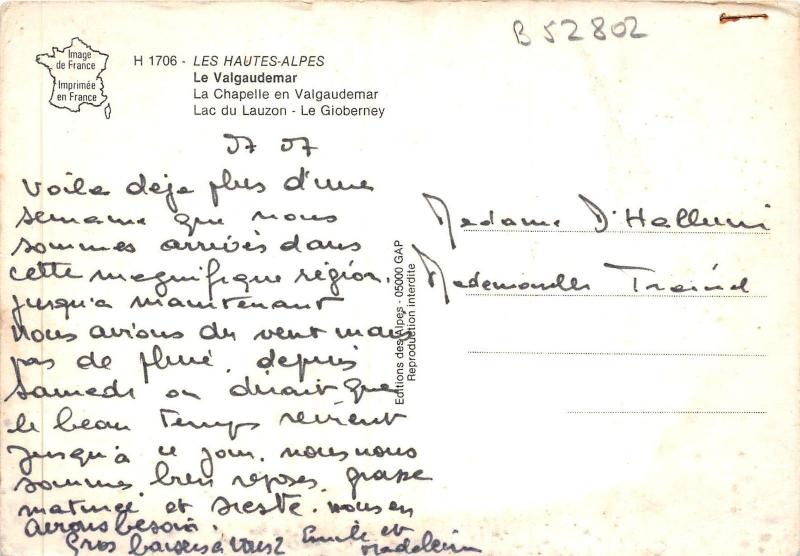 B 52802
Image
de France
Imprimée
en France
H 1706 - LES HAUTES-ALPES
Le Valgaudemar
La Chapelle en Valgaudemar
Lac du Lauzon - Le Gioberney
Voila deja plus d'une
semaine que nous
sommes arrivés dans
cette magnifique région.
jusqu'a maintenant
nous avions du vent mais
pas de pluie. depuis
samedi on dirait que
le beau temps revient
jusqu'à ce jour. nous nous
sommes bien reposés, grasse
matinée et sieste. nous en
avons besoin.
Gros baisers à vous 2 Emile et
Madeleine
Editions des Alpes - 05000 GAP
Reproduction interdite
Madame D'Halluni
Mademoiselle